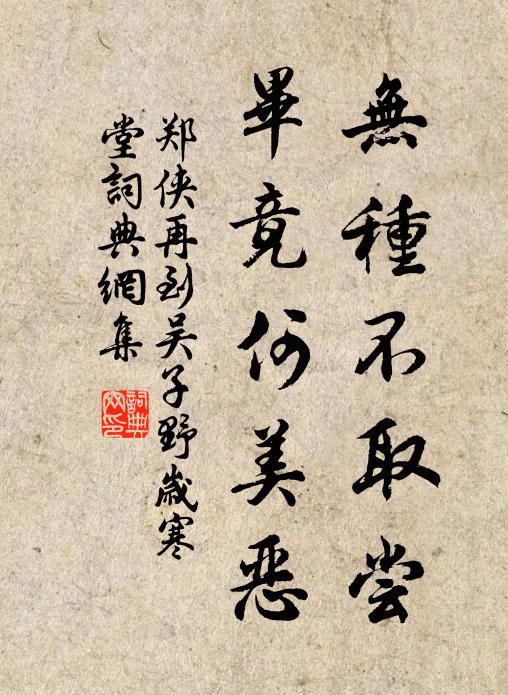 無種不取尝
畢竟何美惡
郑侠再到吴子野歲寒
堂詞典網集
詞典网印